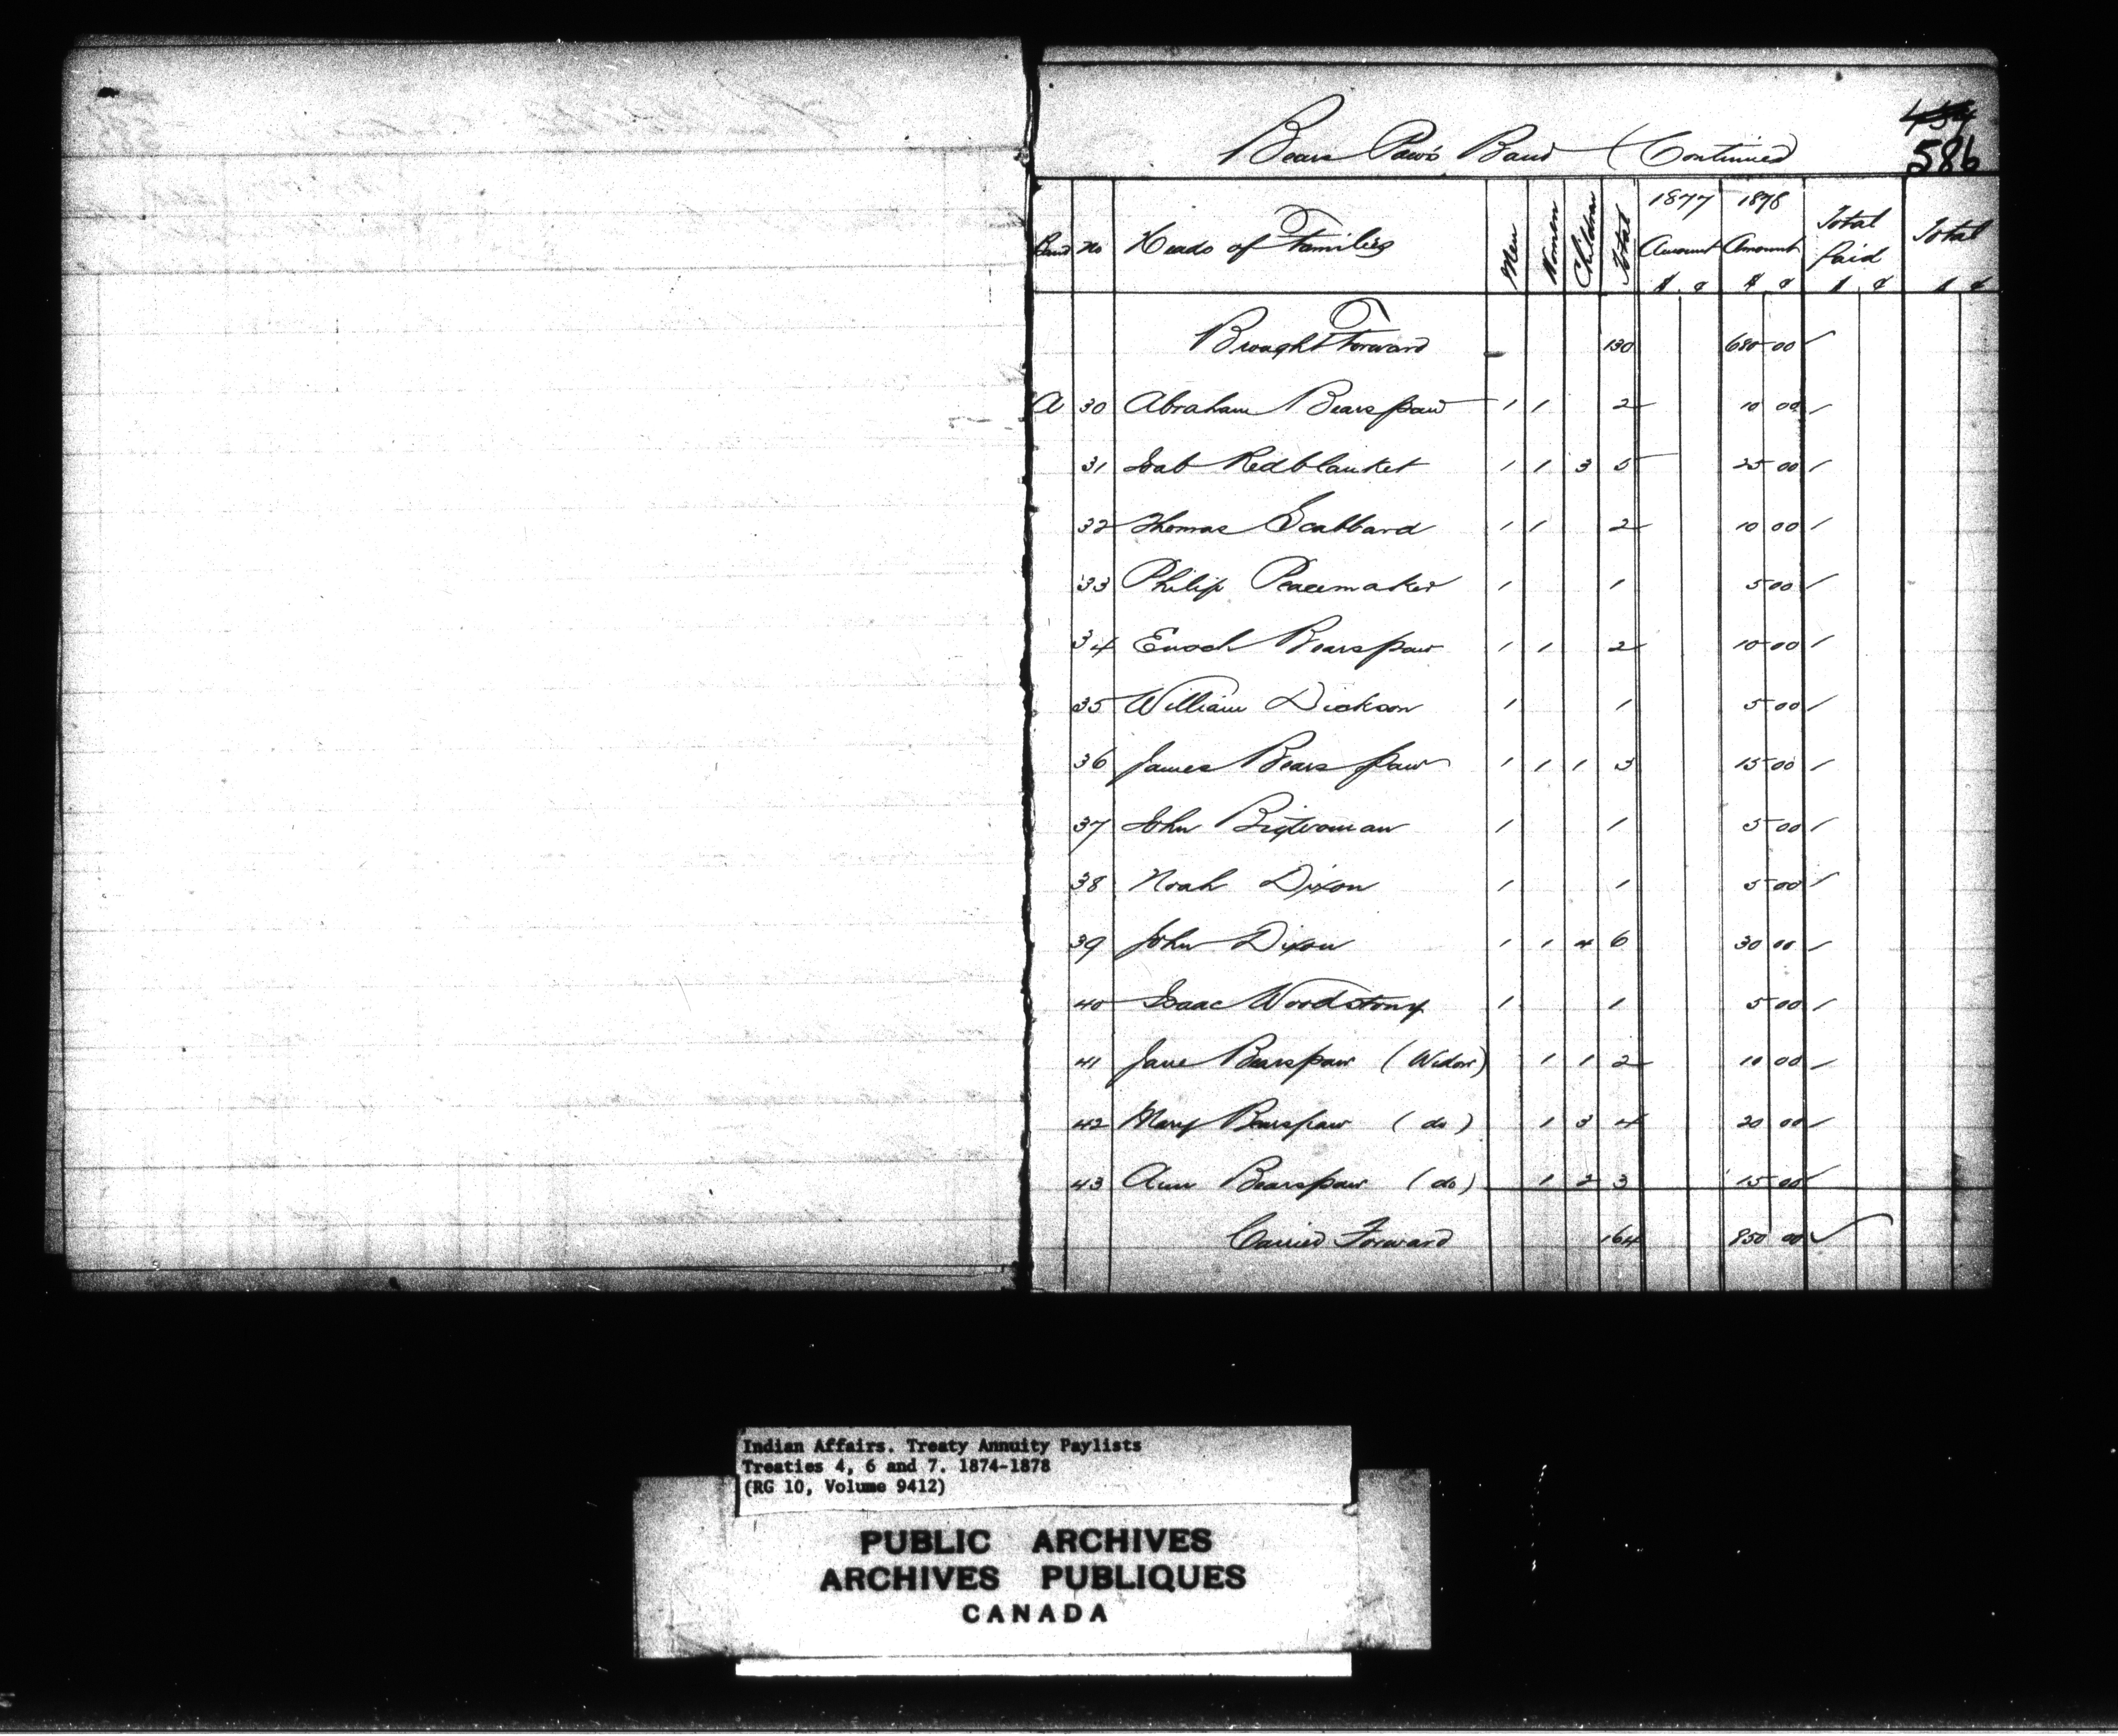 Bears Paw's Band (Continued
586
Band No Heads of Families Men Women Children Total 1877 Amount $ ¢ 1878 Amount $ ¢ Total Paid $ ¢ Total $ ¢
Brought Forward 130 680 00 ✓
A 30 Abraham Bearspaw 1 1 2 10 00 ✓
31 Redblanket 1 1 3 5 25 00 ✓
32 Thomas Scabbard 1 1 2 10 00 ✓
33 Philip Peacemaker 1 1 5 00 ✓
34 Enoch Bearspaw 1 1 2 10 00 ✓
35 William Dickson 1 1 5 00 ✓
36 James Bears paw 1 1 1 3 15 00 ✓
37 John Bigwoman 1 1 5 00 ✓
38 Noah Dixon 1 1 5 00 ✓
39 John Dixon 1 1 4 6 30 00 ✓
40 Isaac Woodstony 1 1 5 00 ✓
41 Jane Bearspaw (Widow) 1 1 2 10 00 ✓
42 Mary Bearspaw (do) 1 3 4 20 00 ✓
43 Ann Bearspaw (do) 1 2 3 15 00 ✓
Carried Forward 164 850 00 ✓
Indian Affairs. Treaty Annuity Paylists
Treaties 4, 6 and 7. 1874-1878
(RG 10, Volume 9412)
PUBLIC ARCHIVES
ARCHIVES PUBLIQUES
CANADA